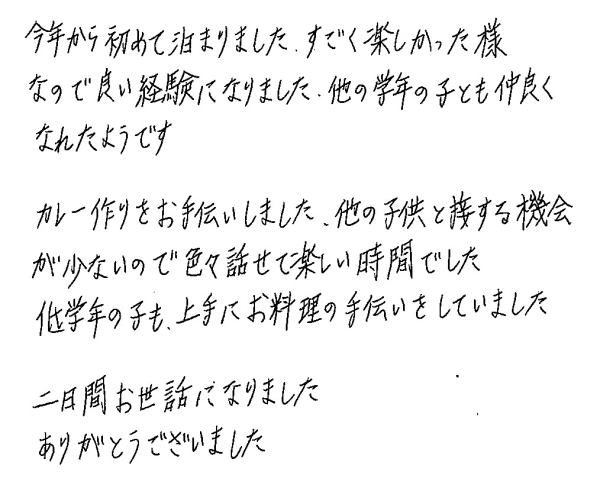 今年から初めて泊まりました、すごく楽しかった様
なので良い経験になりました、他の学年の子とも仲良く
なれたようです
カレー作りをお手伝いしました、他の子供と接する機会
が少ないので色々話せて楽しい時間でした
低学年の子も、上手にお料理の手伝いをしていました
二日間お世話になりました
ありがとうございました